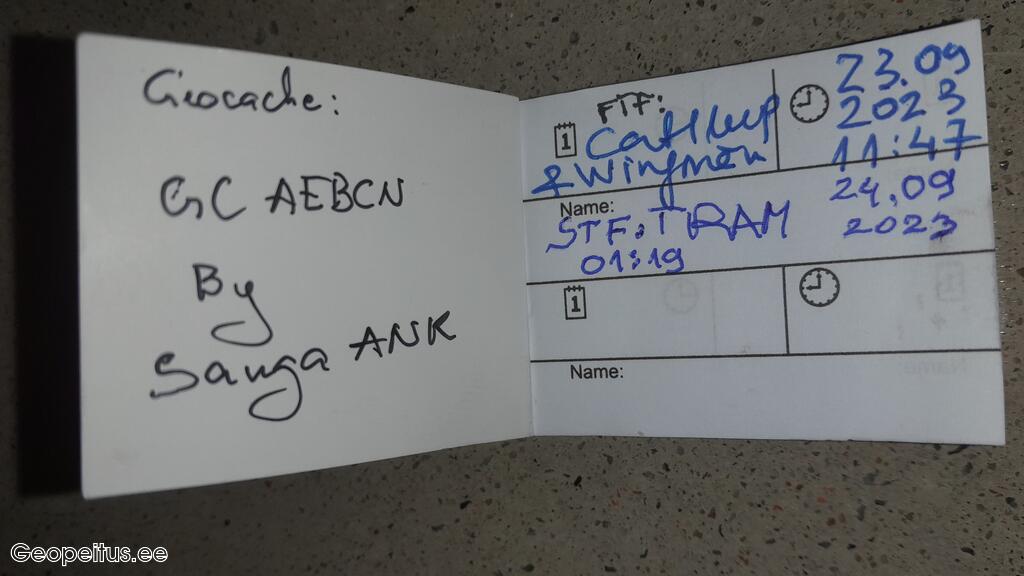 Geocache:
GC AEBCN
By
Sauga ANK
FTF:
1
& Wingman
23.09
2023
11:47
Name:
STF: TRAM
01:19
24.09
2023
1
Name:
Geopeitus.ee